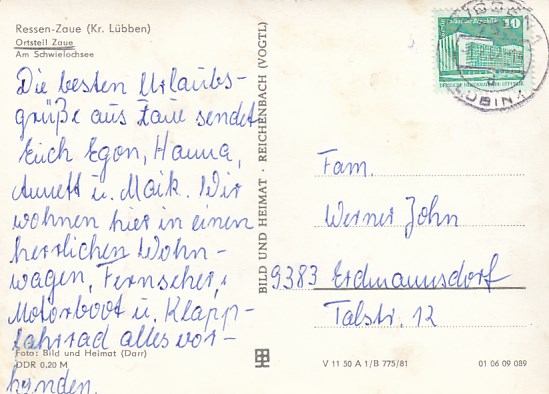 Ressen-Zaue (Kr. Lübben)
Ortsteil Zaue
Am Schwielochsee
Die besten Urlaubs-
grüße aus Zaue sendet
Euch Egon, Hanna,
Annett u. Maik. Wir
wohnen hier in einen
herrlichen Wohn-
wagen, Fernseher,
Motorboot u. Klapp-
fahrrad alles vor-
handen.
Foto: Bild und Heimat (Darr)
DDR 0.20 M
BILD UND HEIMAT · REICHENBACH (VOGTL)
10
Fam.
Werner John
9383 Erdmannsdorf
Talstr. 12
V 11 50 A 1/B 775/81
01 06 09 089